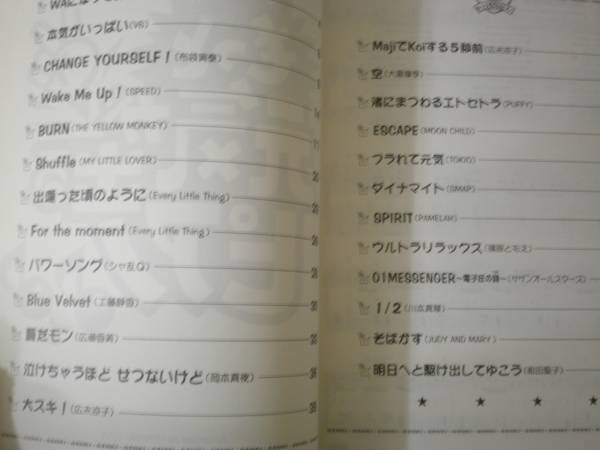 WAになっ
本気がいっぱい(V6)
CHANGE YOURSELF!(布袋寅泰)
Wake Me Up!(SPEED)
BURN(THE YELLOW MONKEY)
Shuffle(MY LITTLE LOVER)
出逢った頃のように(Every Little Thing)
For the moment(Every Little Thing)
パワーソング(シャ乱Q)
Blue Velvet(工藤静香)
夏だモン(広瀬香美)
泣けちゃうほど せつないけど(岡本真夜)
大スキ!(広末涼子)
MajiでKoiする5秒前(広末涼子)
空(大黒摩季)
渚にまつわるエトセトラ(PUFFY)
ESCAPE(MOON CHILD)
フラれて元気(TOKIO)
ダイナマイト(SMAP)
SPIRIT(PAMELAH)
ウルトラリラックス(篠原ともえ)
01MESSENGER〜電子狂の詩〜(サザンオールスターズ)
1/2(川本真琴)
そばかす(JUDY AND MARY)
明日へと駆け出してゆこう(和田聖子)
★ ★ ★ ★